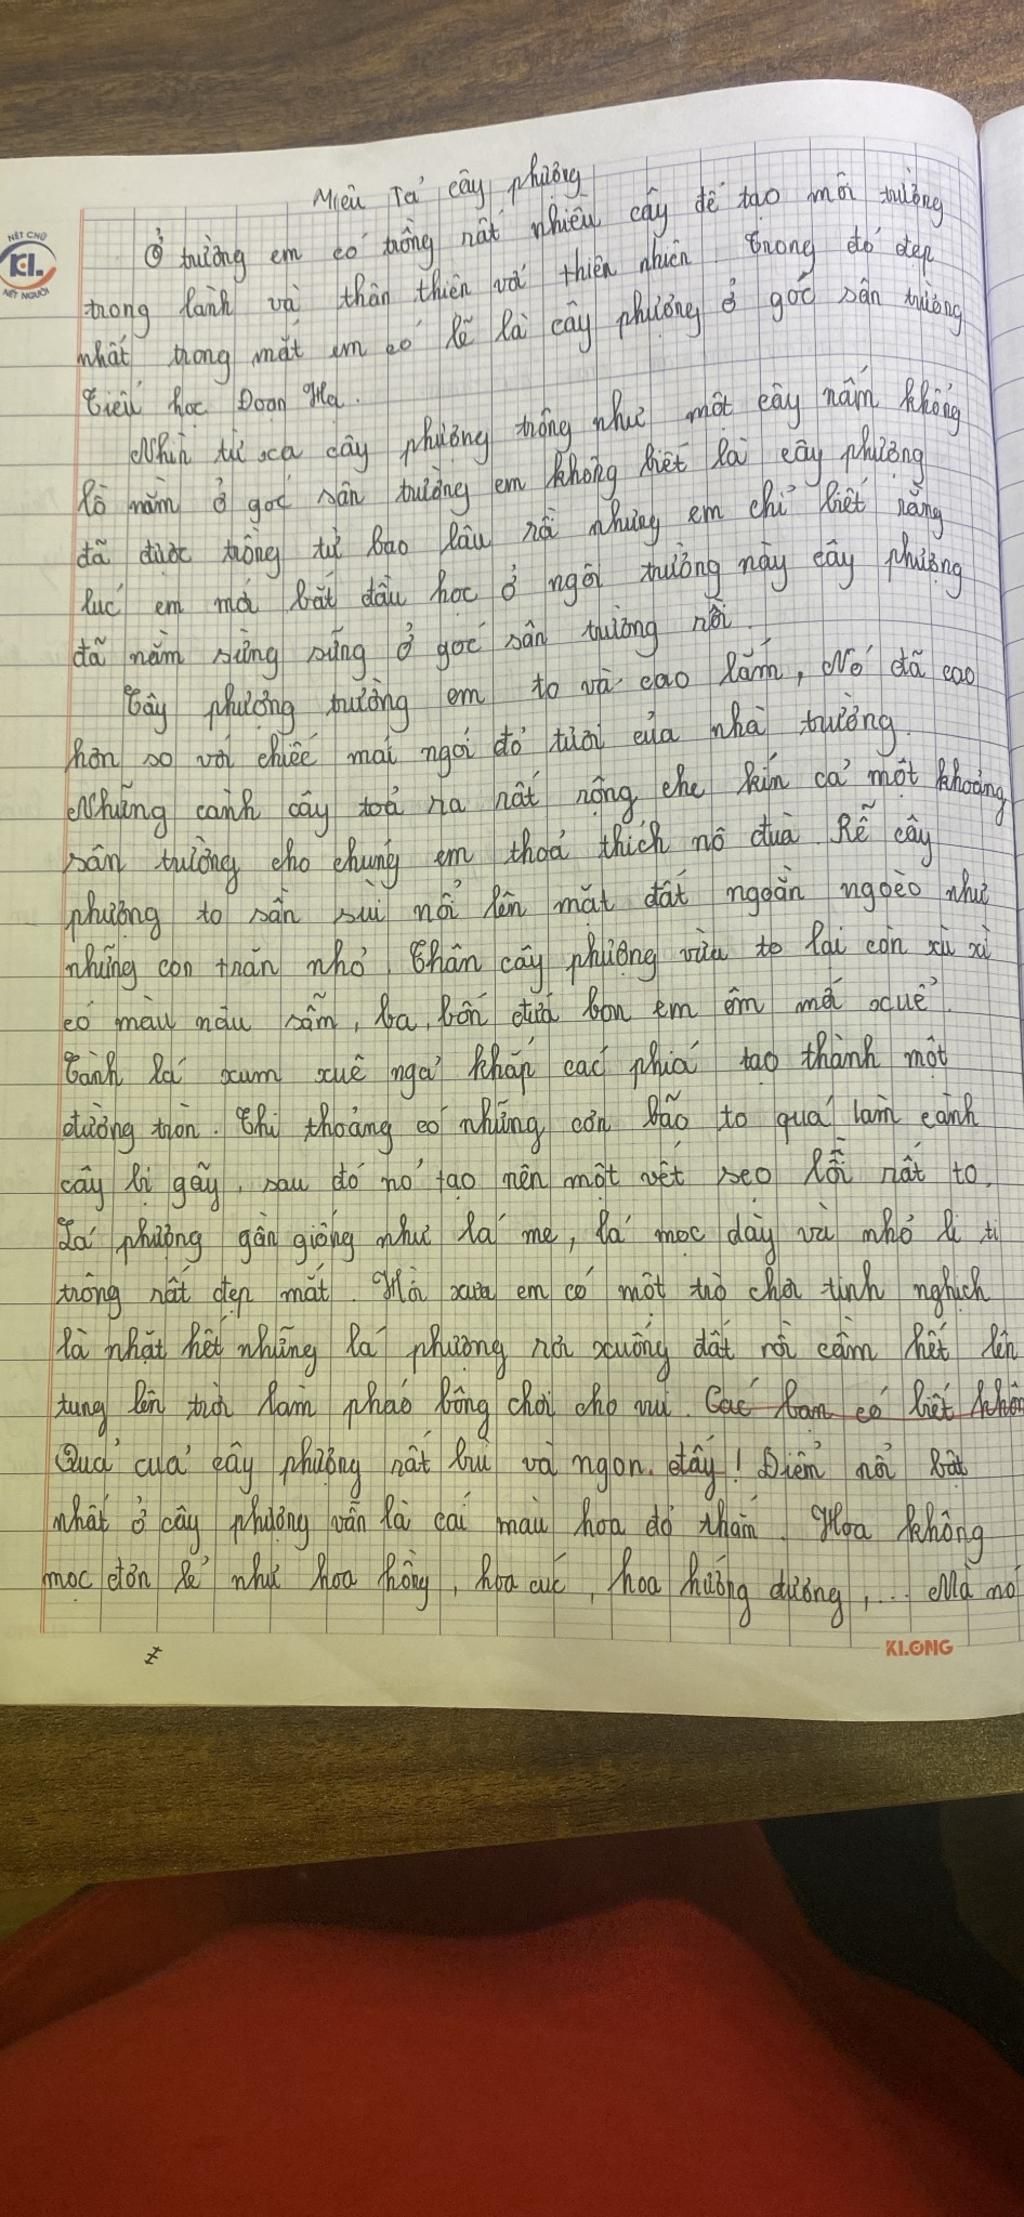 Miêu Tả cây phượng
Ở trường em có trồng rất nhiều cây để tạo môi trường
trong lành và thân thiên với thiên nhiên. Trong đó đẹp
nhất trong mắt em có lẽ là cây phượng ở góc sân trường
Tiểu học Đoan Hạ.
Nhìn từ xa cây phượng trông như một cây nấm khổng
lồ nằm ở góc sân trường em không biết là cây phượng
đã được trồng từ bao lâu rồi nhưng em chỉ biết rằng
lúc em mới bắt đầu học ở ngôi trường này cây phượng
đã nằm sừng sững ở góc sân trường rồi.
Cây phượng trường em to và cao lắm, Nó đã cao
hơn so với chiếc mái ngói đỏ tươi của nhà trường.
Những cành cây toả ra rất rộng che kín cả một khoảng
sân trường cho chúng em thoả thích nô đùa. Rễ cây
phượng to sần sùi nổi lên mặt đất ngoằn ngoèo như
những con trăn nhỏ. Thân cây phượng vừa to lại còn xù xì
có màu nâu sẫm, ba, bốn đứa bọn em ôm mới xuể.
Cành lá xum xuê ngả khắp các phía tạo thành một
đường tròn. Thi thoảng có những cơn bão to quá làm cành
cây bị gãy, sau đó nó tạo nên một vết seo lồi rất to.
Lá phượng gần giống như lá me, lá mọc dày và nhỏ li ti
trông rất đẹp mắt. Hồi xưa em có một trò chơi tinh nghịch
là nhặt hết những lá phượng rơi xuống đất rồi cầm hết lên
tung lên trời làm pháo bông chơi cho vui. Các bạn có biết khôn
Quả của cây phượng rất bùi và ngon đấy! Điểm nổi bật
nhất ở cây phượng vẫn là cái màu hoa đỏ thắm. Hoa không
mọc đơn lẻ như hoa hồng, hoa cúc, hoa hướng dương,... Mà nó
NÉT CHỮ
KL
NẾT NGƯỜI
KLONG